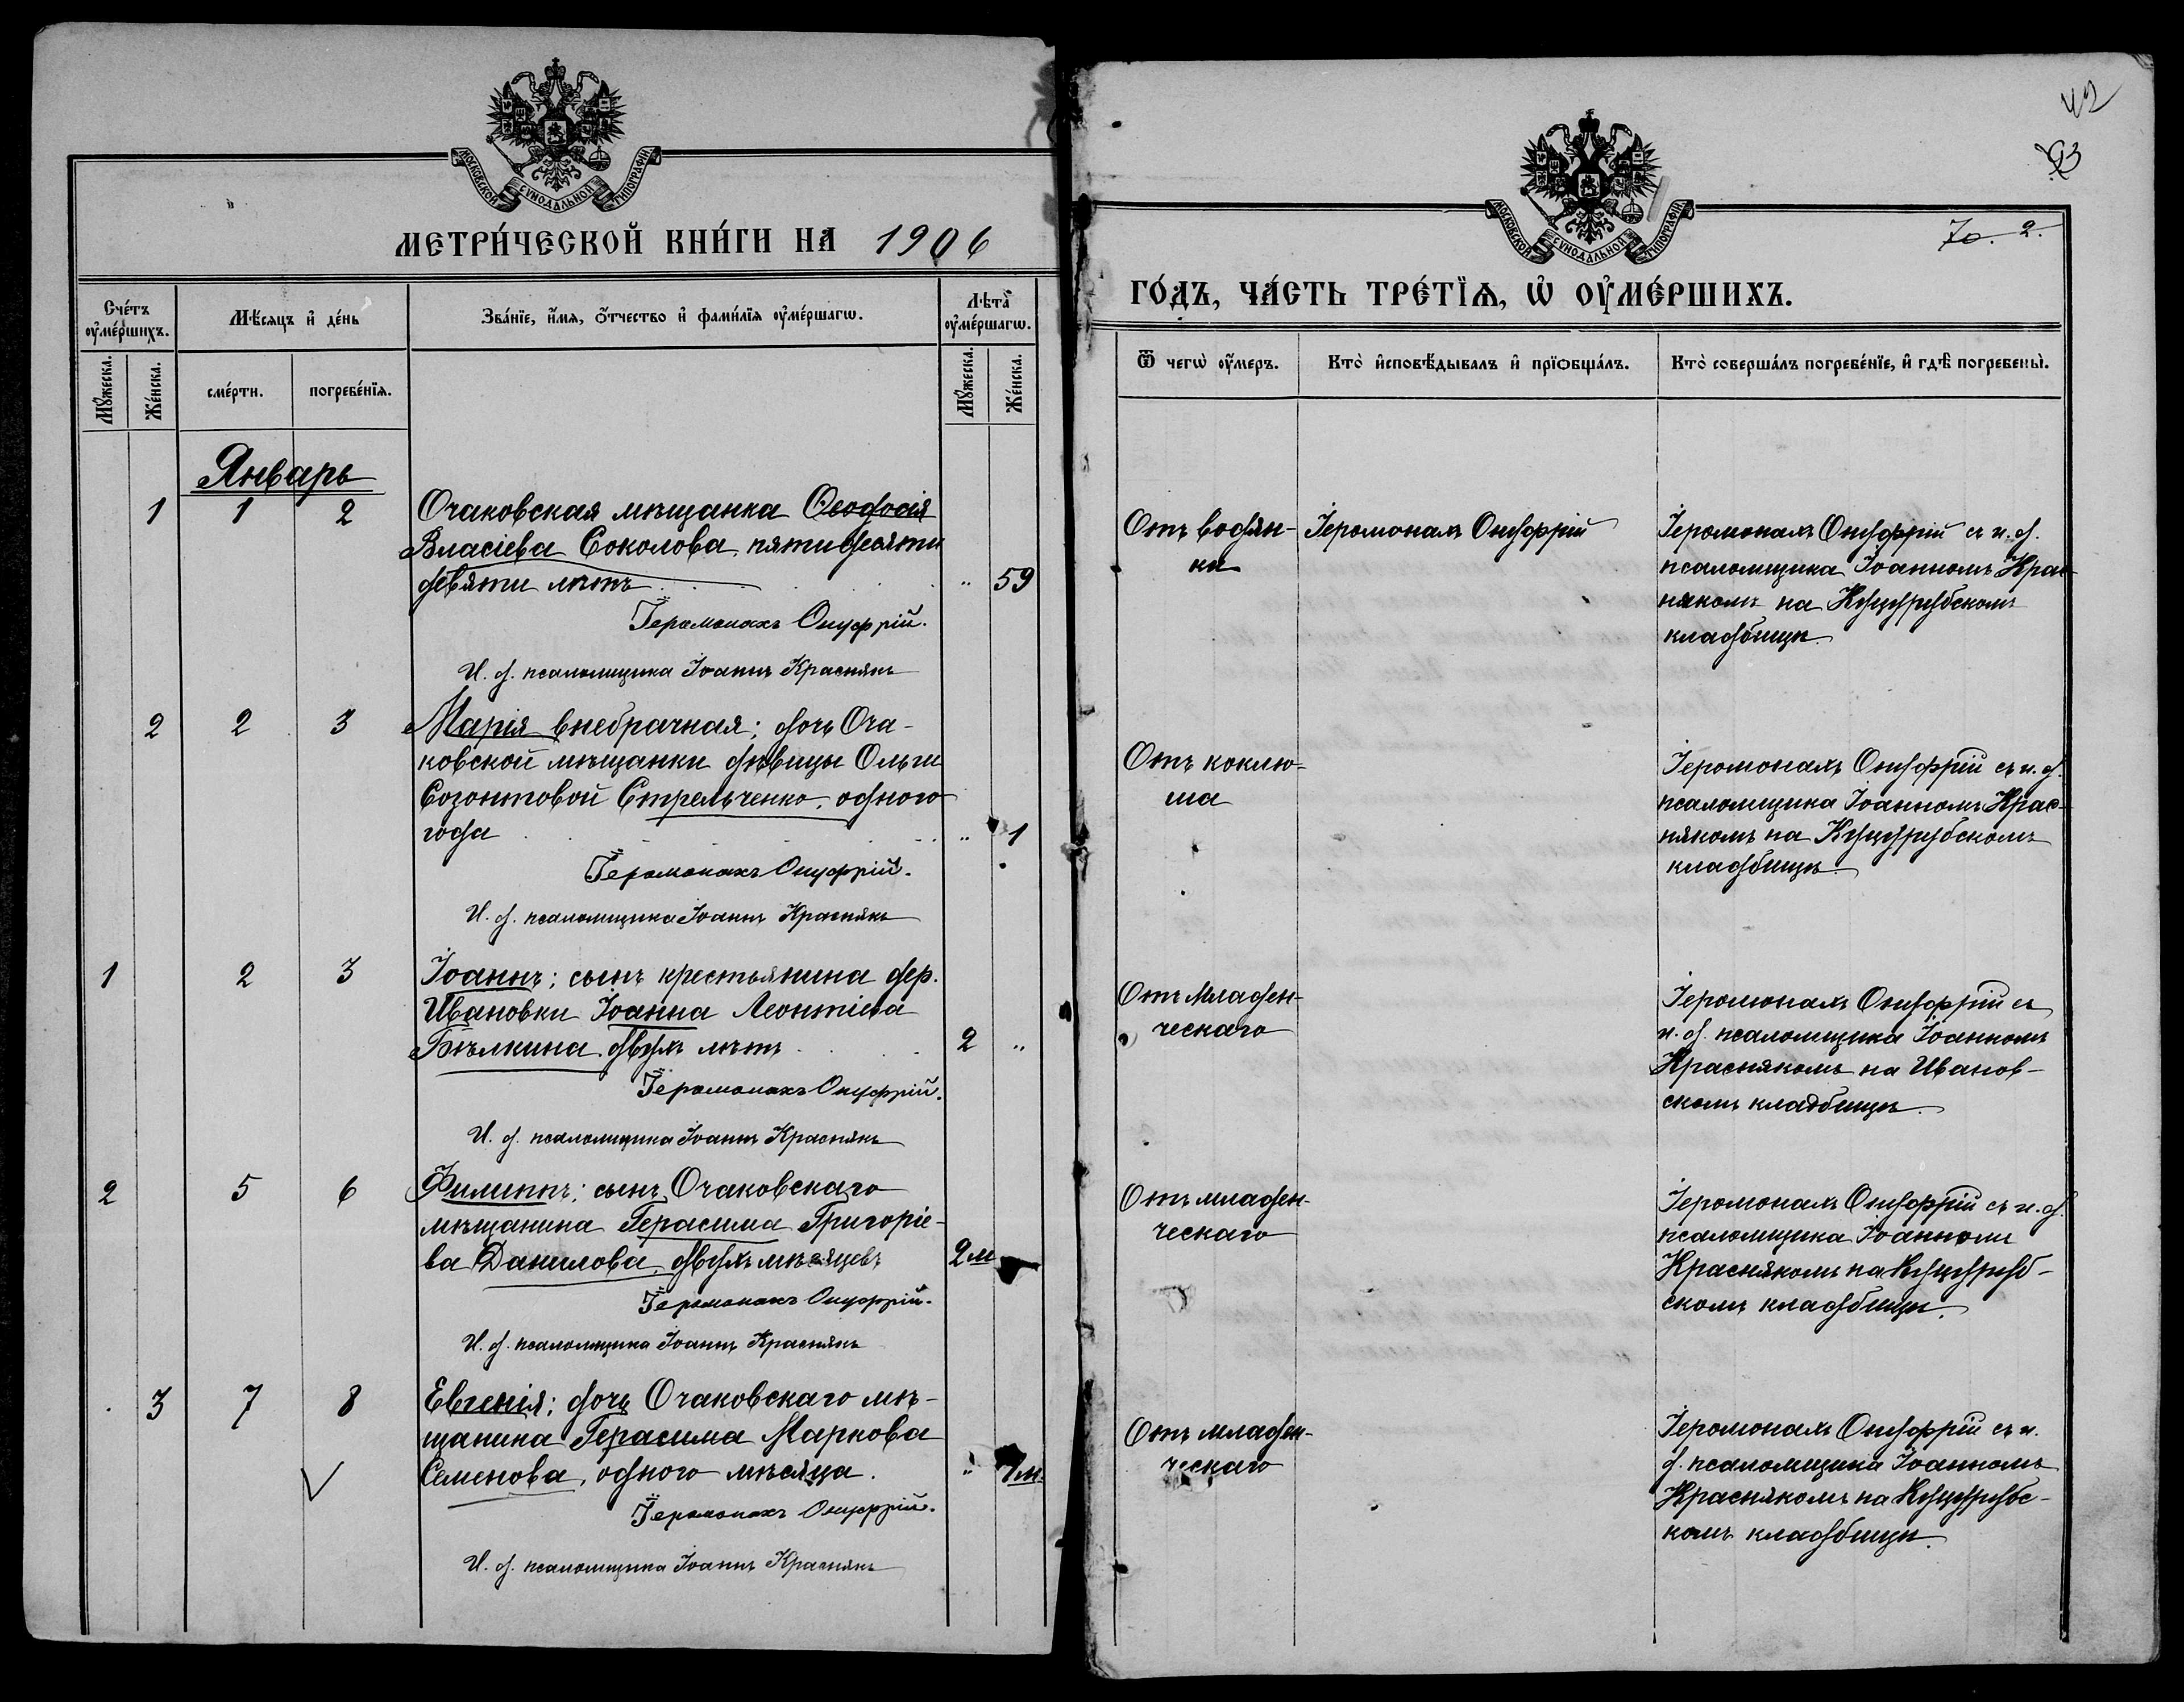 МОСКОВСКОЙ СѴНОДАЛЬНОЙ ТИПОГРАФІИ
МЕТРИ́ЧЕСКОЙ КНИ́ГИ НА 1906
Сче́тъ ᲂу҆ме́ршихъ.
Мѣ́сяцъ и҆ де́нь
Зва́нїе, и҆́мѧ, ѻ҆́тчество и҆ фами́лїѧ ᲂу҆ме́ршагѡ.
Лѣта̀ ᲂу҆ме́ршагѡ.
Мꙋ́жеска.
Же́нска.
сме́рти.
погребе́нїѧ.
Мꙋ́жеска.
Же́нска.
Январь
1 1 2 Очаковская мѣщанка Ѳеодосія
Власіева Соколова, пятидесяти
девяти лѣтъ . . . „ 59
Іеромонахъ Онуфрій.
И. д. псаломщика Іоаннъ Краснякъ
2 2 3 Марія внебрачная; дочь Оча-
ковской мѣщанки дѣвицы Ольги
Созонтовой Стрельченко, одного
года . . . „ 1
Іеромонахъ Онуфрій.
И. д. псаломщика Іоаннъ Краснякъ
1 2 3 Іоаннъ; сынъ крестьянина дер.
Ивановки Іоанна Леонтіева
Бѣлкина, двухъ лѣтъ . . . 2 „
Іеромонахъ Онуфрій.
И. д. псаломщика Іоаннъ Краснякъ
2 5 6 Филиппъ; сынъ Очаковскаго
мѣщанина Герасима Григоріе-
ва Данилова, двухъ мѣсяцевъ 2м
Іеромонахъ Онуфрій.
И. д. псаломщика Іоаннъ Краснякъ
3 7 8 Евгенія; дочь Очаковскаго мѣ-
щанина Герасима Маркова
Семенова, одного мѣсяца. „ 1м.
Іеромонахъ Онуфрій.
И. д. псаломщика Іоаннъ Краснякъ
42
93
70. 2.
МОСКОВСКОЙ СѴНОДАЛЬНОЙ ТИПОГРАФІИ
ГО́ДЪ, ЧА́СТЬ ТРЕ́ТЇѦ, Ѡ҆ ОУ҆МЕ́РШИХЪ.
Ѿ чегѡ̀ ᲂу҆́меръ.
Кто̀ и҆сповѣ́дывалъ и҆ прїѡбща́лъ.
Кто̀ соверша́лъ погребе́нїе, и҆ гдѣ̀ погребены̀.
Отъ водян-
ки
Іеромонахъ Онуфрій
Іеромонахъ Онуфрій съ и. д.
псаломщика Іоанномъ Крас-
някомъ на Куцурубскомъ
кладбищѣ.
Отъ коклю-
ша
Іеромонахъ Онуфрій съ и. д.
псаломщика Іоанномъ Крас-
някомъ на Куцурубскомъ
кладбищѣ.
Отъ младен-
ческаго
Іеромонахъ Онуфрій съ
и. д. псаломщика Іоанномъ
Краснякомъ на Иванов-
скомъ кладбищѣ.
Отъ младен-
ческаго
Іеромонахъ Онуфрій съ и. д.
псаломщика Іоанномъ
Краснякомъ на Куцуруб-
скомъ кладбищѣ.
Отъ младен-
ческаго
Іеромонахъ Онуфрій съ и.
д. псаломщика Іоанномъ
Краснякомъ на Куцурубс-
комъ кладбищѣ.